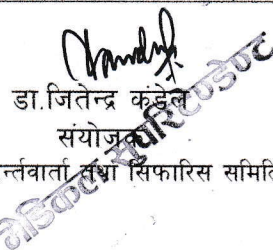 डा.जितेन्द्र कंडेल
संयोजक
न्र्तवार्ता तथा सिफारिस समिति
मेडिकल सुपरिटेण्डेण्ट